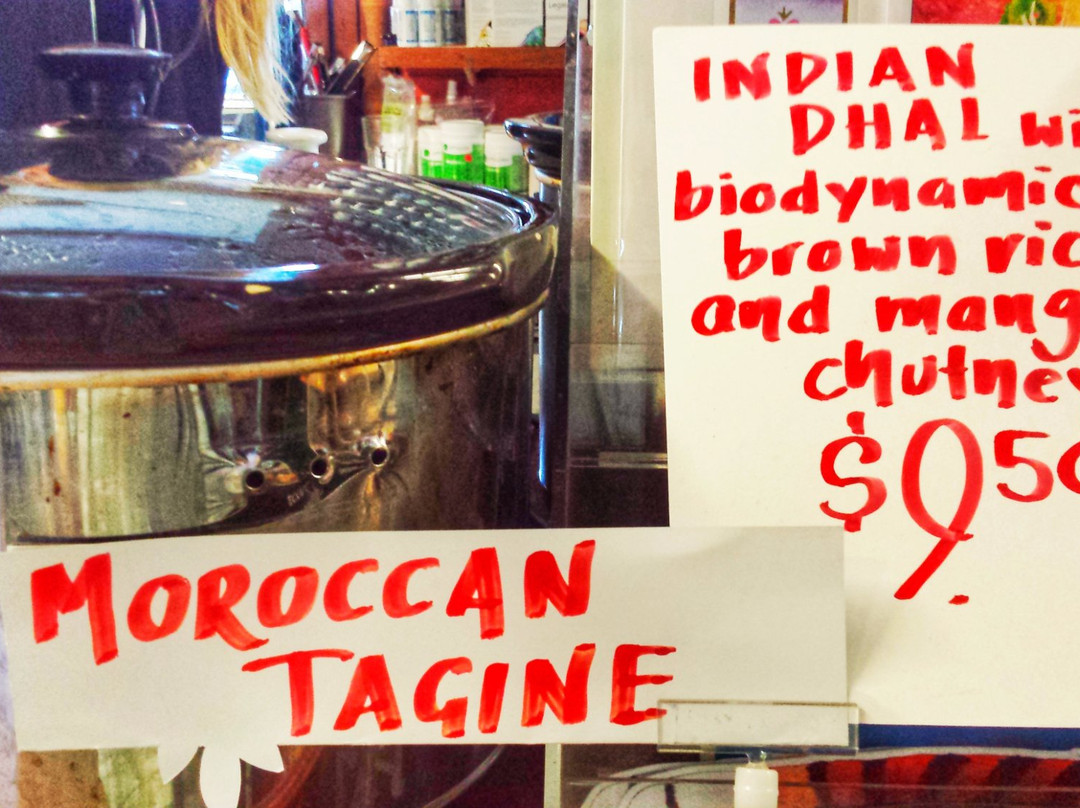 MOROCCAN
TAGINE
INDIAN
DHAL wi
biodynamic
brown ric
and mang
chutney
$9.50